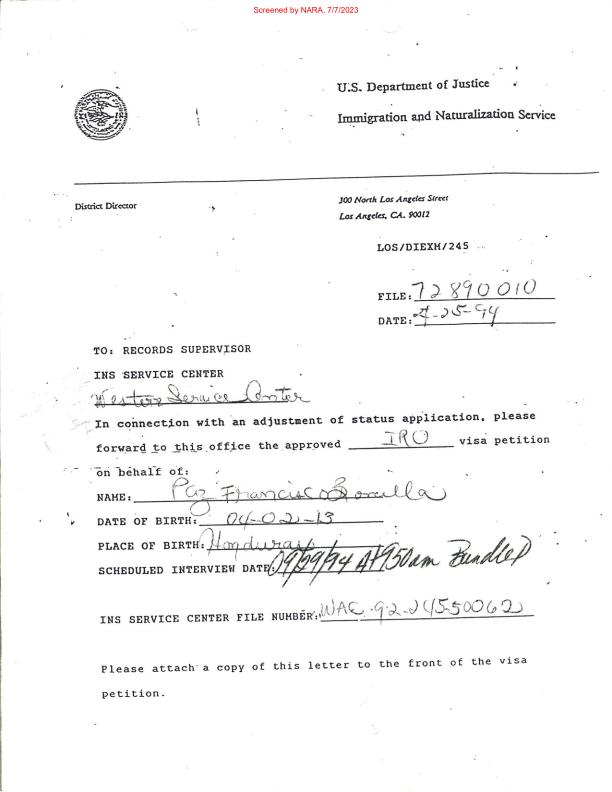 Screened by NARA, 7/7/2023
U.S. Department of Justice
Immigration and Naturalization Service
District Director
300 North Los Angeles Street
Los Angeles, CA. 90012
LOS/DIEXM/245
FILE: 72 890 010
DATE: 4-25-94
TO: RECORDS SUPERVISOR
INS SERVICE CENTER
Western Service Center
In connection with an adjustment of status application, please
forward to this office the approved IRO visa petition
on behalf of:
NAME: Paz Francisco Bonilla
DATE OF BIRTH: 04-02-13
PLACE OF BIRTH: Honduras
SCHEDULED INTERVIEW DATE: 09/29/94 At 950am Bundled
INS SERVICE CENTER FILE NUMBER: WAC-92-245-50062
Please attach a copy of this letter to the front of the visa
petition.